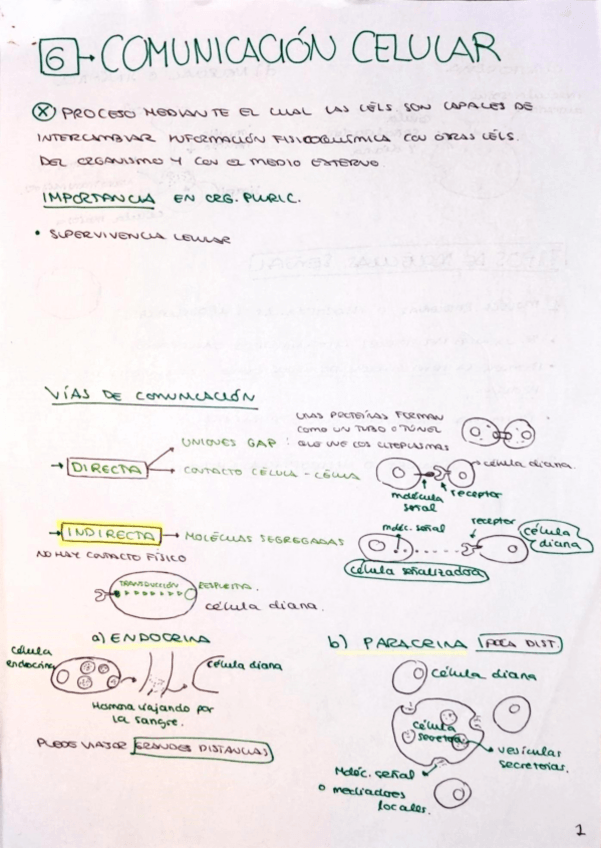 6 → COMUNICACIÓN CELULAR
PROCESO MEDIANTE EL CUAL LAS CÉLS. SON CAPACES DE
INTERCAMBIAR INFORMACIÓN FISICOQUÍMICA CON OTRAS CÉLS.
DEL ORGANISMO Y CON EL MEDIO EXTERNO
IMPORTANCIA EN ORG. PLURIC.
• SUPERVIVENCIA CELULAR
VÍAS DE COMUNICACIÓN
→ DIRECTA
UNIONES GAP : UNAS PROTEÍNAS FORMAN
COMO UN TUBO O TÚNEL
QUE UNE LOS CITOPLASMAS
CONTACTO CÉLULA - CÉLULA
célula diana
molécula
señal
receptor
→ INDIRECTA → MOLÉCULAS SEGREGADAS
NO HAY CONTACTO FÍSICO
moléc. señal
receptor
célula
diana
célula señalizadora
TRANSDUCCIÓN
RESPUESTA.
célula diana.
a) ENDOCRINA
célula
endocrina
célula diana
Hormona viajando por
la sangre.
PUEDE VIAJAR GRANDES DISTANCIAS
b) PARACRINA (POCA DIST.
célula diana
célula
secretora
vesículas
secretoras.
Moléc. señal
o mediadores
locales.
1